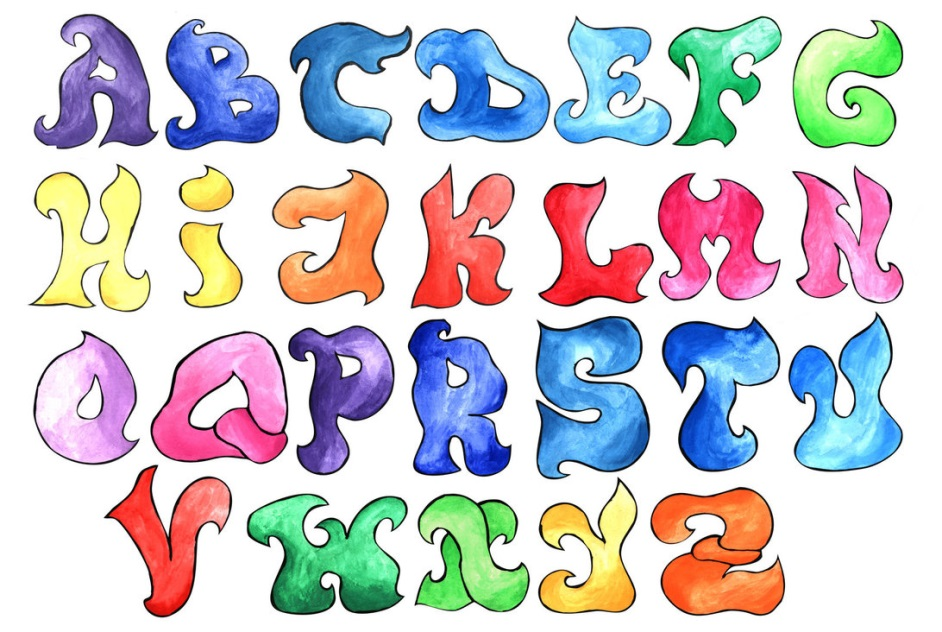 A B C D E F G
H i J K L M N
O Q P R S T U
V W X Y Z